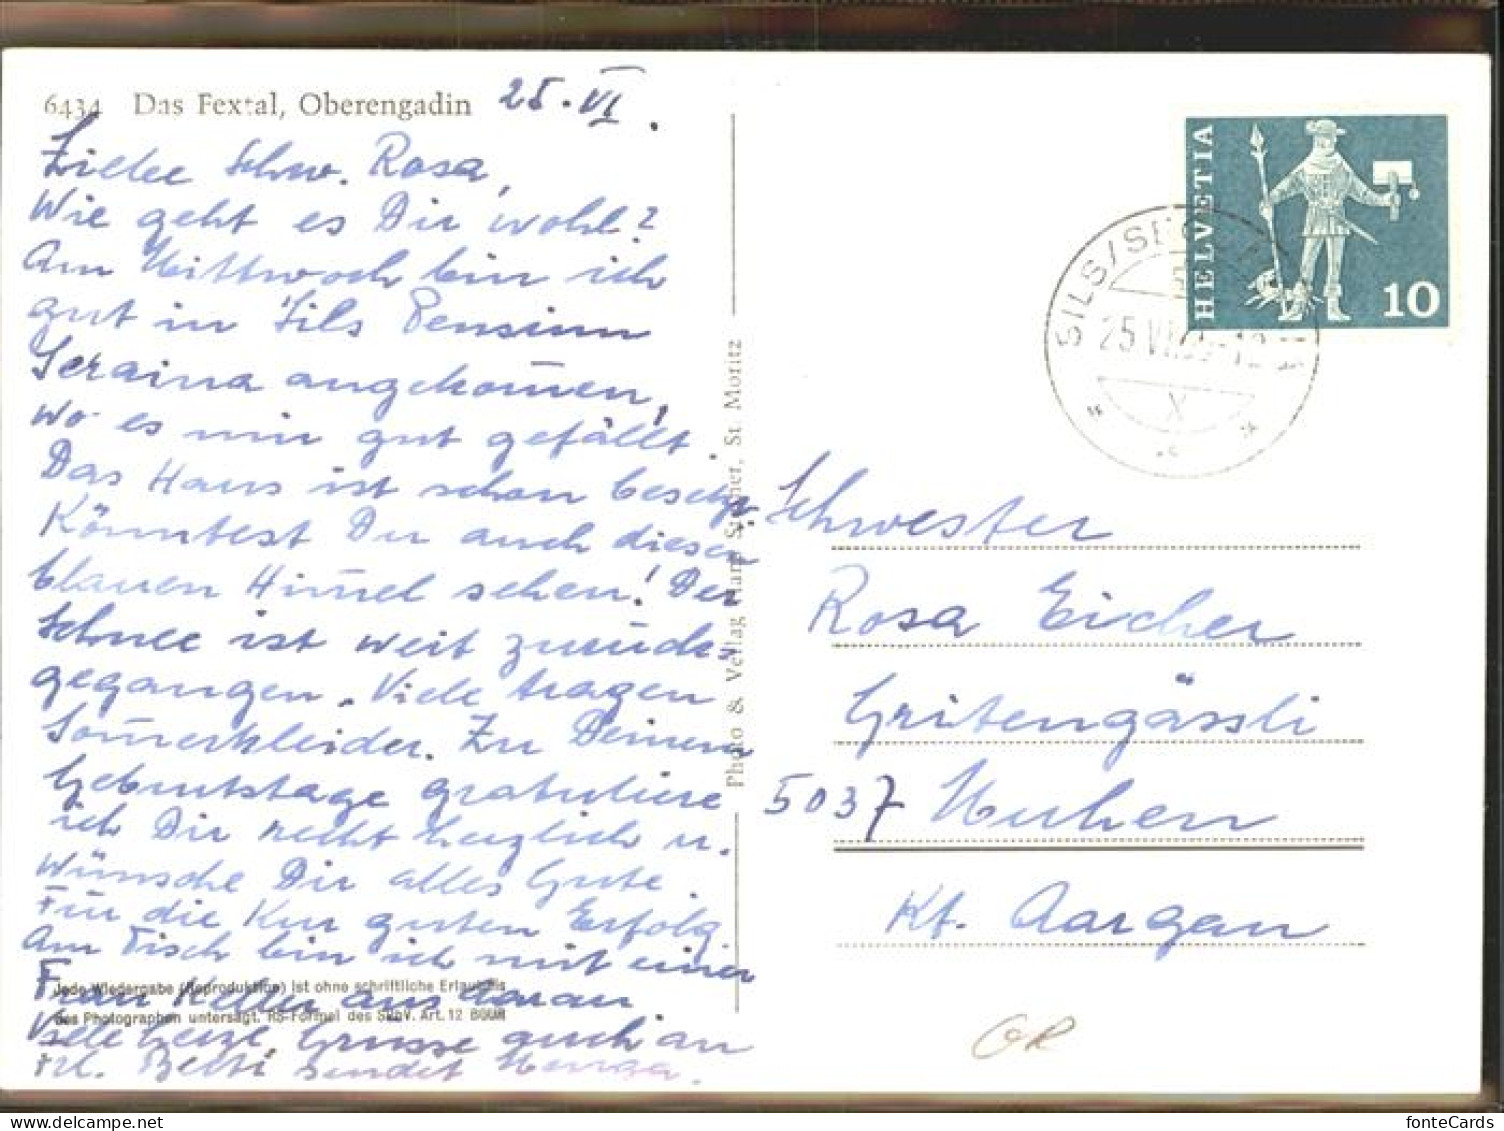 6434 Das Fextal, Oberengadin 25. VI.
Liebe Schw. Rosa,
Wie geht es Dir wohl?
Am Mittwoch bin ich
gut in Sils Pension
Seraina angekom̅en,
wo es mir gut gefällt.
Das Haus ist schon besetzt.
Könntest Du auch diesen
blauen Him̅el sehen! Der
Schnee ist weit zurück-
gegangen. Viele tragen
Som̅erkleider. Zu Deinem
Geburtstage gratuliere
ich Dir recht herzlich u.
Wünsche Dir alles Gute.
Für die Kur guten Erfolg.
Am Tisch bin ich mit einer
Frau Keller aus Aarau
Viele herzl. Grüsse auch an
Frl. Betti sendet
Jede Wiedergabe (Reproduktion) ist ohne schriftliche Erlaubnis
des Photographen untersagt. RS-Formel des SPhV. Art. 12 BGUR
Photo & Verlag Hans Steiner, St. Moritz
HELVETIA
10
SILS/SEGL
25.VI
X
Schwester
Rosa Eicher
Gritengässli
5037 Muhen
Kt. Aargau
GR
fonteCards